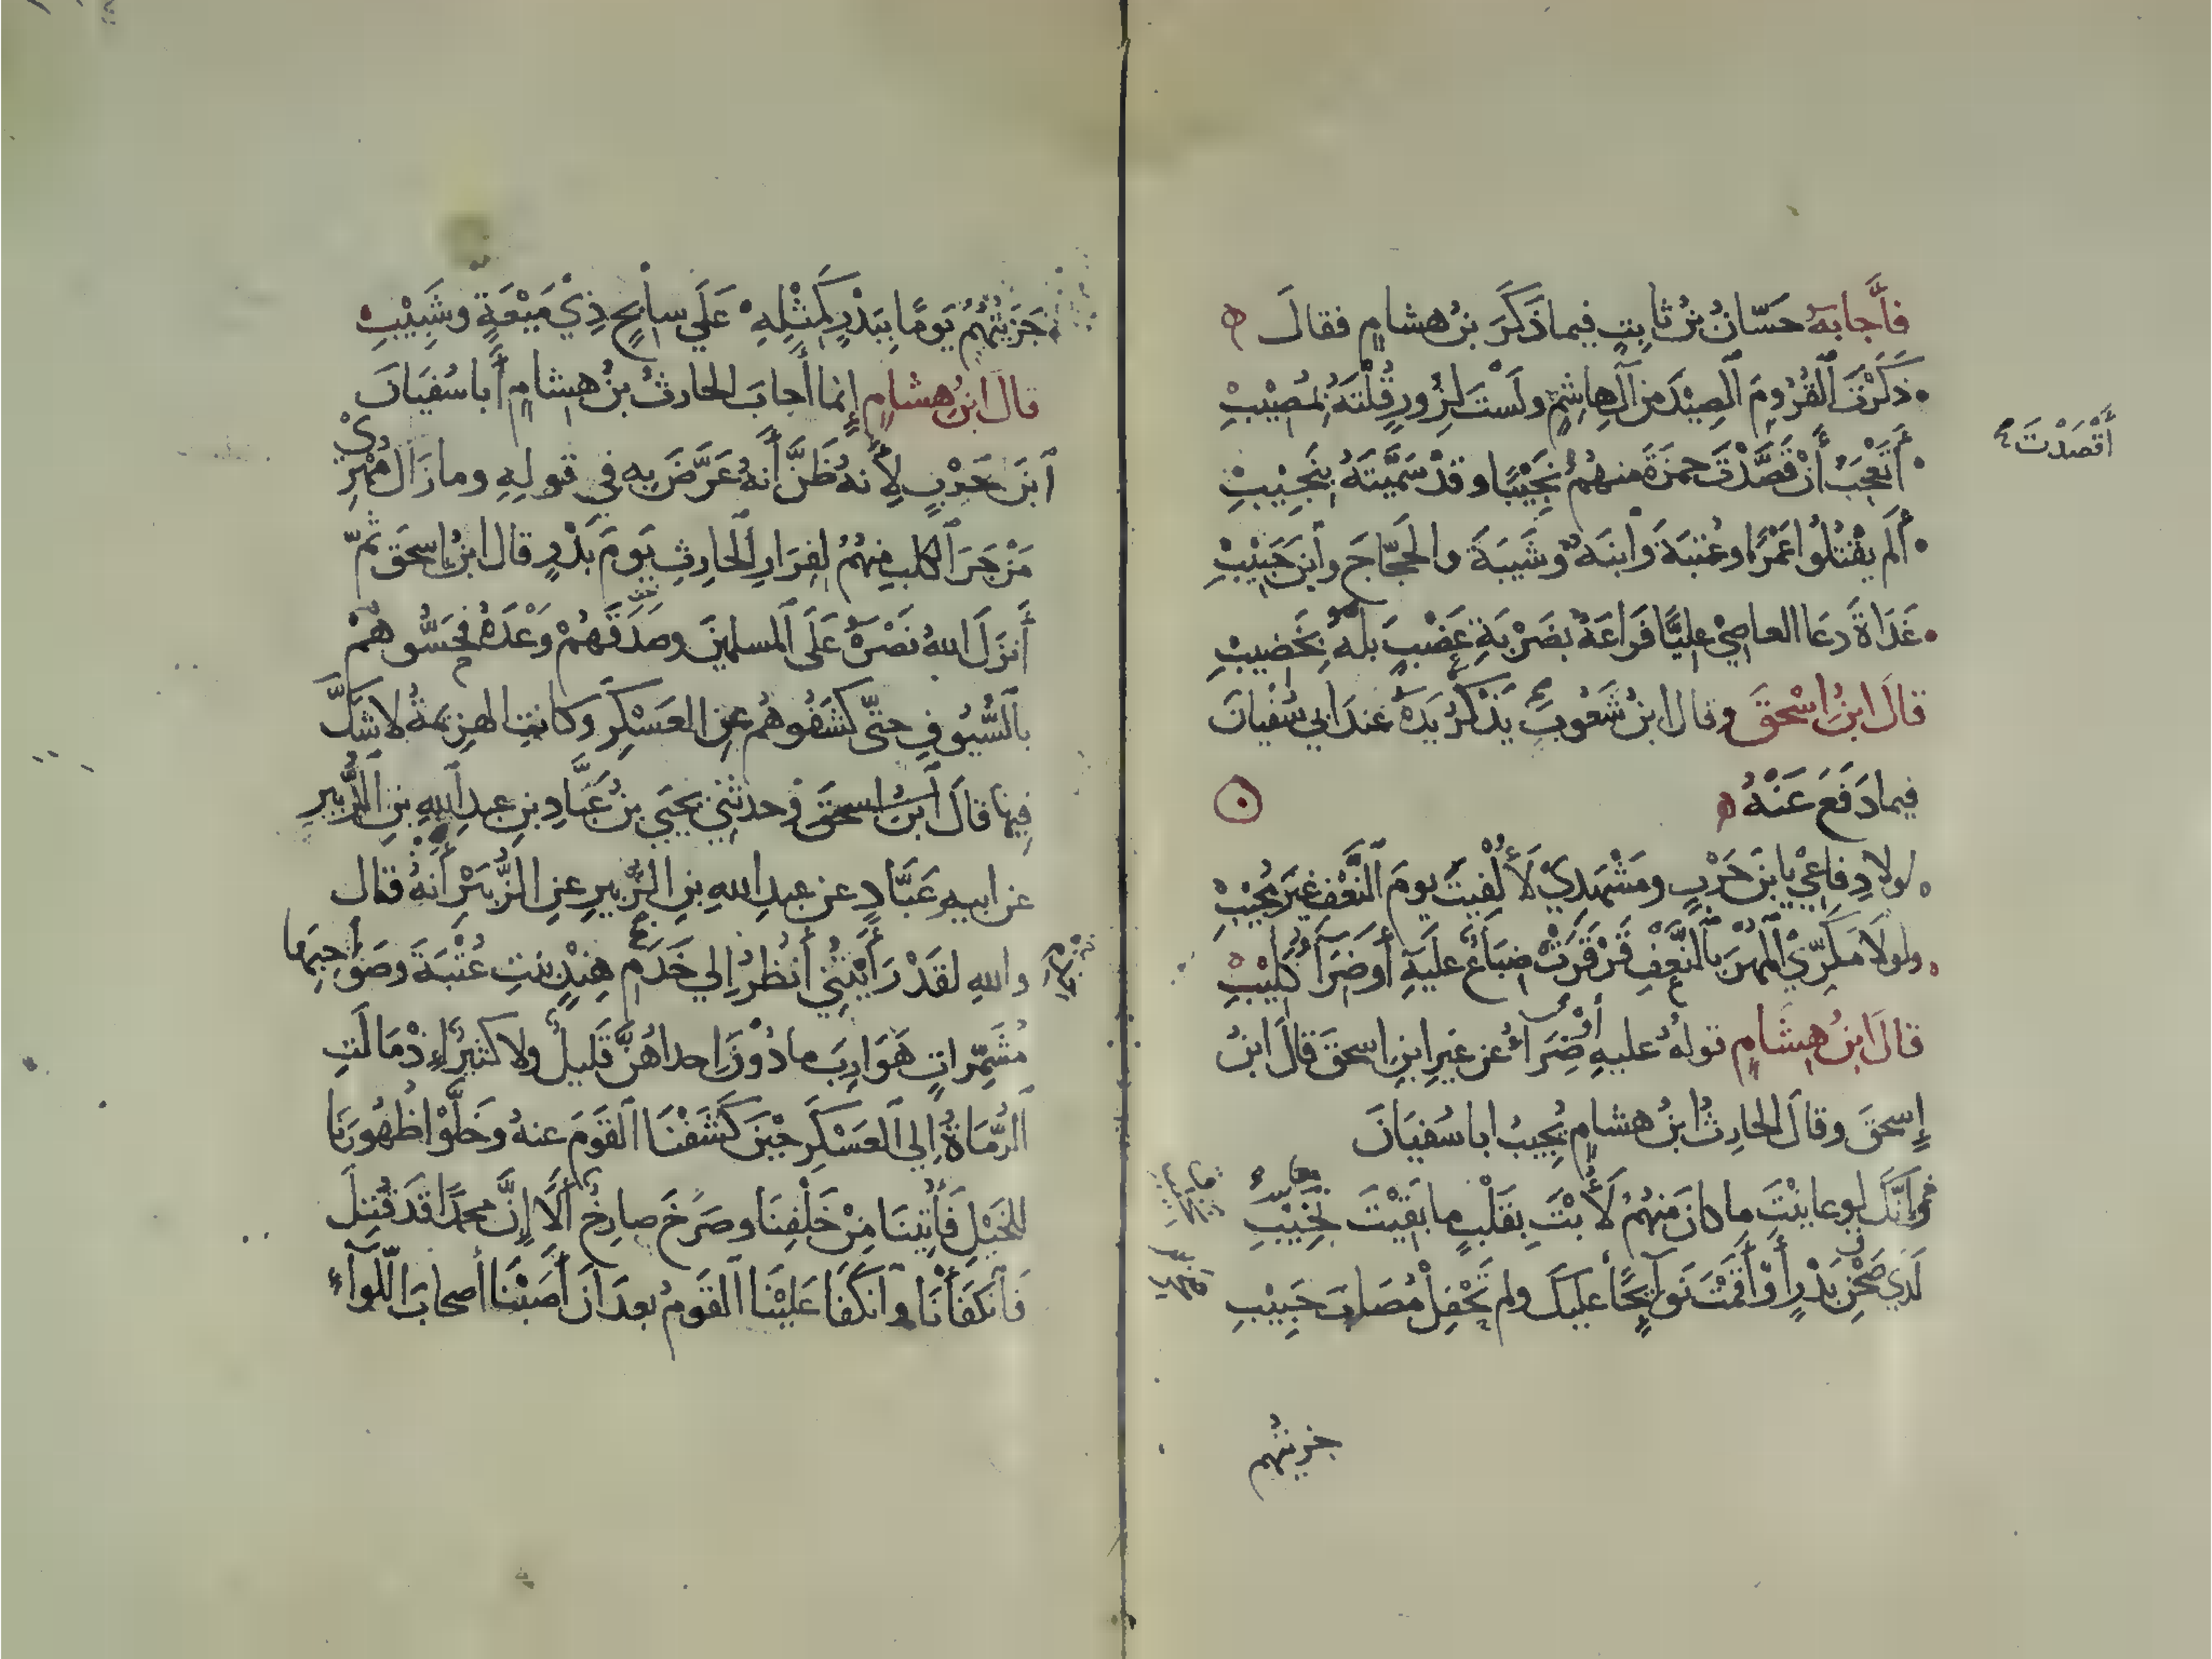 فأَجابَهُ حَسّانُ بنُ ثابِتٍ فيما ذَكَرَ بنُ هشامٍ فقالَ
ذَكَرْتَ ٱلْقُرُومَ ٱلصِيْدَ مِنْ آلِ هاشِمٍ ولَسْتَ لِزُورٍ قُلْتَهُ بِمُصِيْبِ
أَتَعْجَبُ أَنْ قَصَّدْتَ حمزةَ منهُمُ نَجِيْبًا وقدْ سَمَّيْتَهُ بِنَجِيْبِ
أَقْصَدْتَ
أَلَم يقْتُلُوا عَمْرًا وعُتبَةَ وٱبنَهُ وشَيبَةَ والحَجّاجَ وٱبنَ حَبِيْبِ
غَدَاةَ دعَا العاصِيْ عليًّا فَراعَهُ بضَرْبَةِ عَضْبٍ بلهُ بِخَضيبِ
قالَ ابنُ اِسْحقَ وقال ابنُ شَعُوبَ يَذْكُرُ يَدَهُ عندَ ابي سُفْيانَ
فيما دَفَعَ عَنْهُ
لولا دِفاعِيْ يابنَ حَرْبٍ ومَشْهَدِيْ لَأُلْفِيتَ يومَ ٱلنَّعْفِ غيرَ مُجيْبِ
ولولَا مَكَرِّيْ ٱلمُهْرَ بٱلنَّعْفِ قَرْقَرَتْ ضِبَاعٌ عليَهِ أَو ضَرَآءُ كَلِيْبِ
قالَ ابنُ هِشَامٍ قولهُ عليهِ أَوْ ضَرَاءُ عن غيرِ ابنِ اسحقَ قالَ ابنُ
إِسحقَ وقالَ الحارِثُ ابنُ هشامٍ يُجيبُ ابا سُفيَانَ
وَإِنَّكَ لو عاينْتَ ما كانَ منهُمُ لَأُبْتَ بِقَلْبٍ ما بَقيْتَ نَخِيْبِ
لَدي صَحْنِ بَدْرٍ أَوْ أَقَمْتَ نَوآئِحًا عليكَ ولم تَحْفِلْ مُصَابَ حَبِيْبِ
جزيتهم
جَزَيْتُهُمُ يَومًا بِبَدْرٍ كَمِثْلِهِ عَلَي سابِحٍ ذِيْ مَيْعَةٍ وشَبِيْبِ
قالَ ابنُ هِشامٍ إِنما أَجابَ الحارثُ بنُ هِشامٍ أَبا سُفيَانَ
ٱبنَ حَرْبٍ لِأَنهُ ظَنَّ أَنهُ عَرَّضَ بِهِ في قولِهِ وما زَالَ مُهْرِيْ
مَزْجَرَ ٱلكلبِ مِنهُمُ لِفِرَارِ ٱلحارِثِ يَومَ بَدْرٍ قال ابنُ اسحقَ ثمّ
أَنزَلَ اللهُ نَصْرَهُ عَلَى ٱلمسلمينَ وصَدَقَهُمْ وَعْدَهُ فحَسُّوهُمْ
بٱلسُّيُوفِ حتّى كشَفُوهُم عنِ العَسْكَرِ وكانتِ الهزيمةُ لا شَكَّ
فِيها قالَ ٱبنُ اسحقَ وحدثنِي يحيَي بنُ عَبَّادِ بنِ عبدِ ٱللهِ بنِ ٱلزُّبيرِ
عن ابيهِ عَبَّادٍ عن عبدِ اللهِ بنِ الزُّبيرِ عنِ الزُّبَيْرِ أَنهُ قال
واللهِ لقَدْ رَأَيْتُنِي أَنظُرُ اِلي خَدَمِ هِنْدٍ بنتِ عُتْبَةَ وصَوَاحِبِها
مُشَمِّراتٍ هَوَارِبَ ما دُوْنَ اِحداهُنَّ قَلِيلٌ ولا كثيرٌ اِذْ مَالَتِ
ٱلرُّمَاةُ اِلي ٱلعَسْكَرِ حِيْنَ كَشَفْنَا ٱلقَومَ عنهُ وخَلَّوْا ظُهُورَنا
للخَيْلِ فَأُتِينَا مِنْ خَلْفِنَا وصَرَخَ صارِخٌ أَلَا إِنَّ محمدًا قَد قُتِلَ
فٱنكَفَأْنَا وٱنكَفَا عَلَيْنَا ٱلقَومُ بعدَ أَنْ أَصَبْنَا أَصحابَ اللِّوآءِ